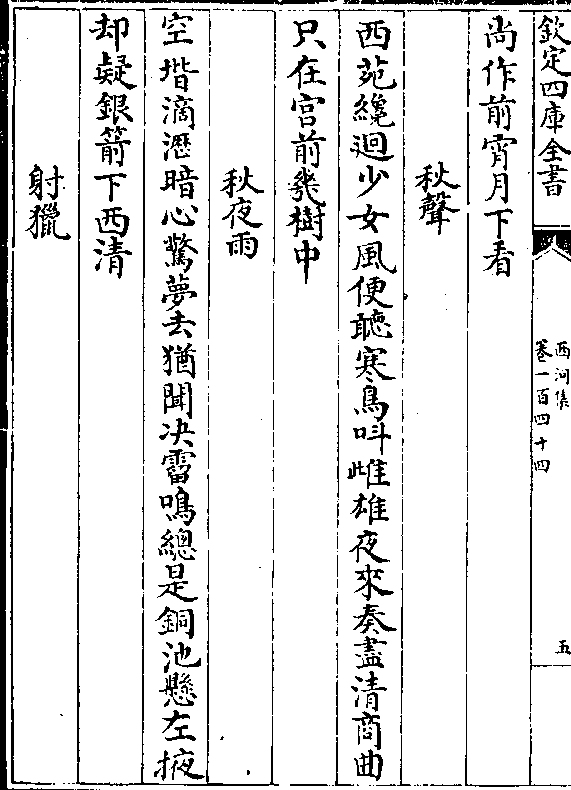 欽定四庫全書
西河集
卷一百四十四
五
尚作前宵月下看
秋聲
西苑纔迴少女風便聽寒鳥呌雌雄夜來奏盡清商曲
只在宮前幾樹中
秋夜雨
空堦滴瀝暗心驚夢去猶聞决霤鳴總是銅池懸左掖
却疑銀箭下西清
射獵